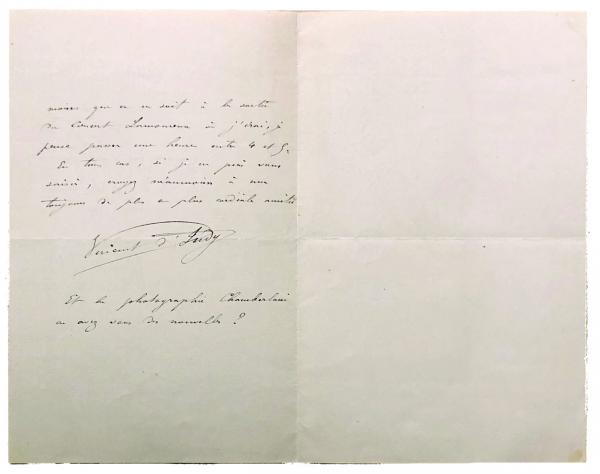 moins que ce ne soit à la sortie
du Concert Lamoureux où j'irai, je
pense passer une heure entre 4 et 5h
En tous cas, si je ne puis vous
saisir, croyez néanmoins à une
toujours de plus en plus cordiale amitié
Vincent d'Indy
Et la photographie Chamberlain
en avez vous des nouvelles ?